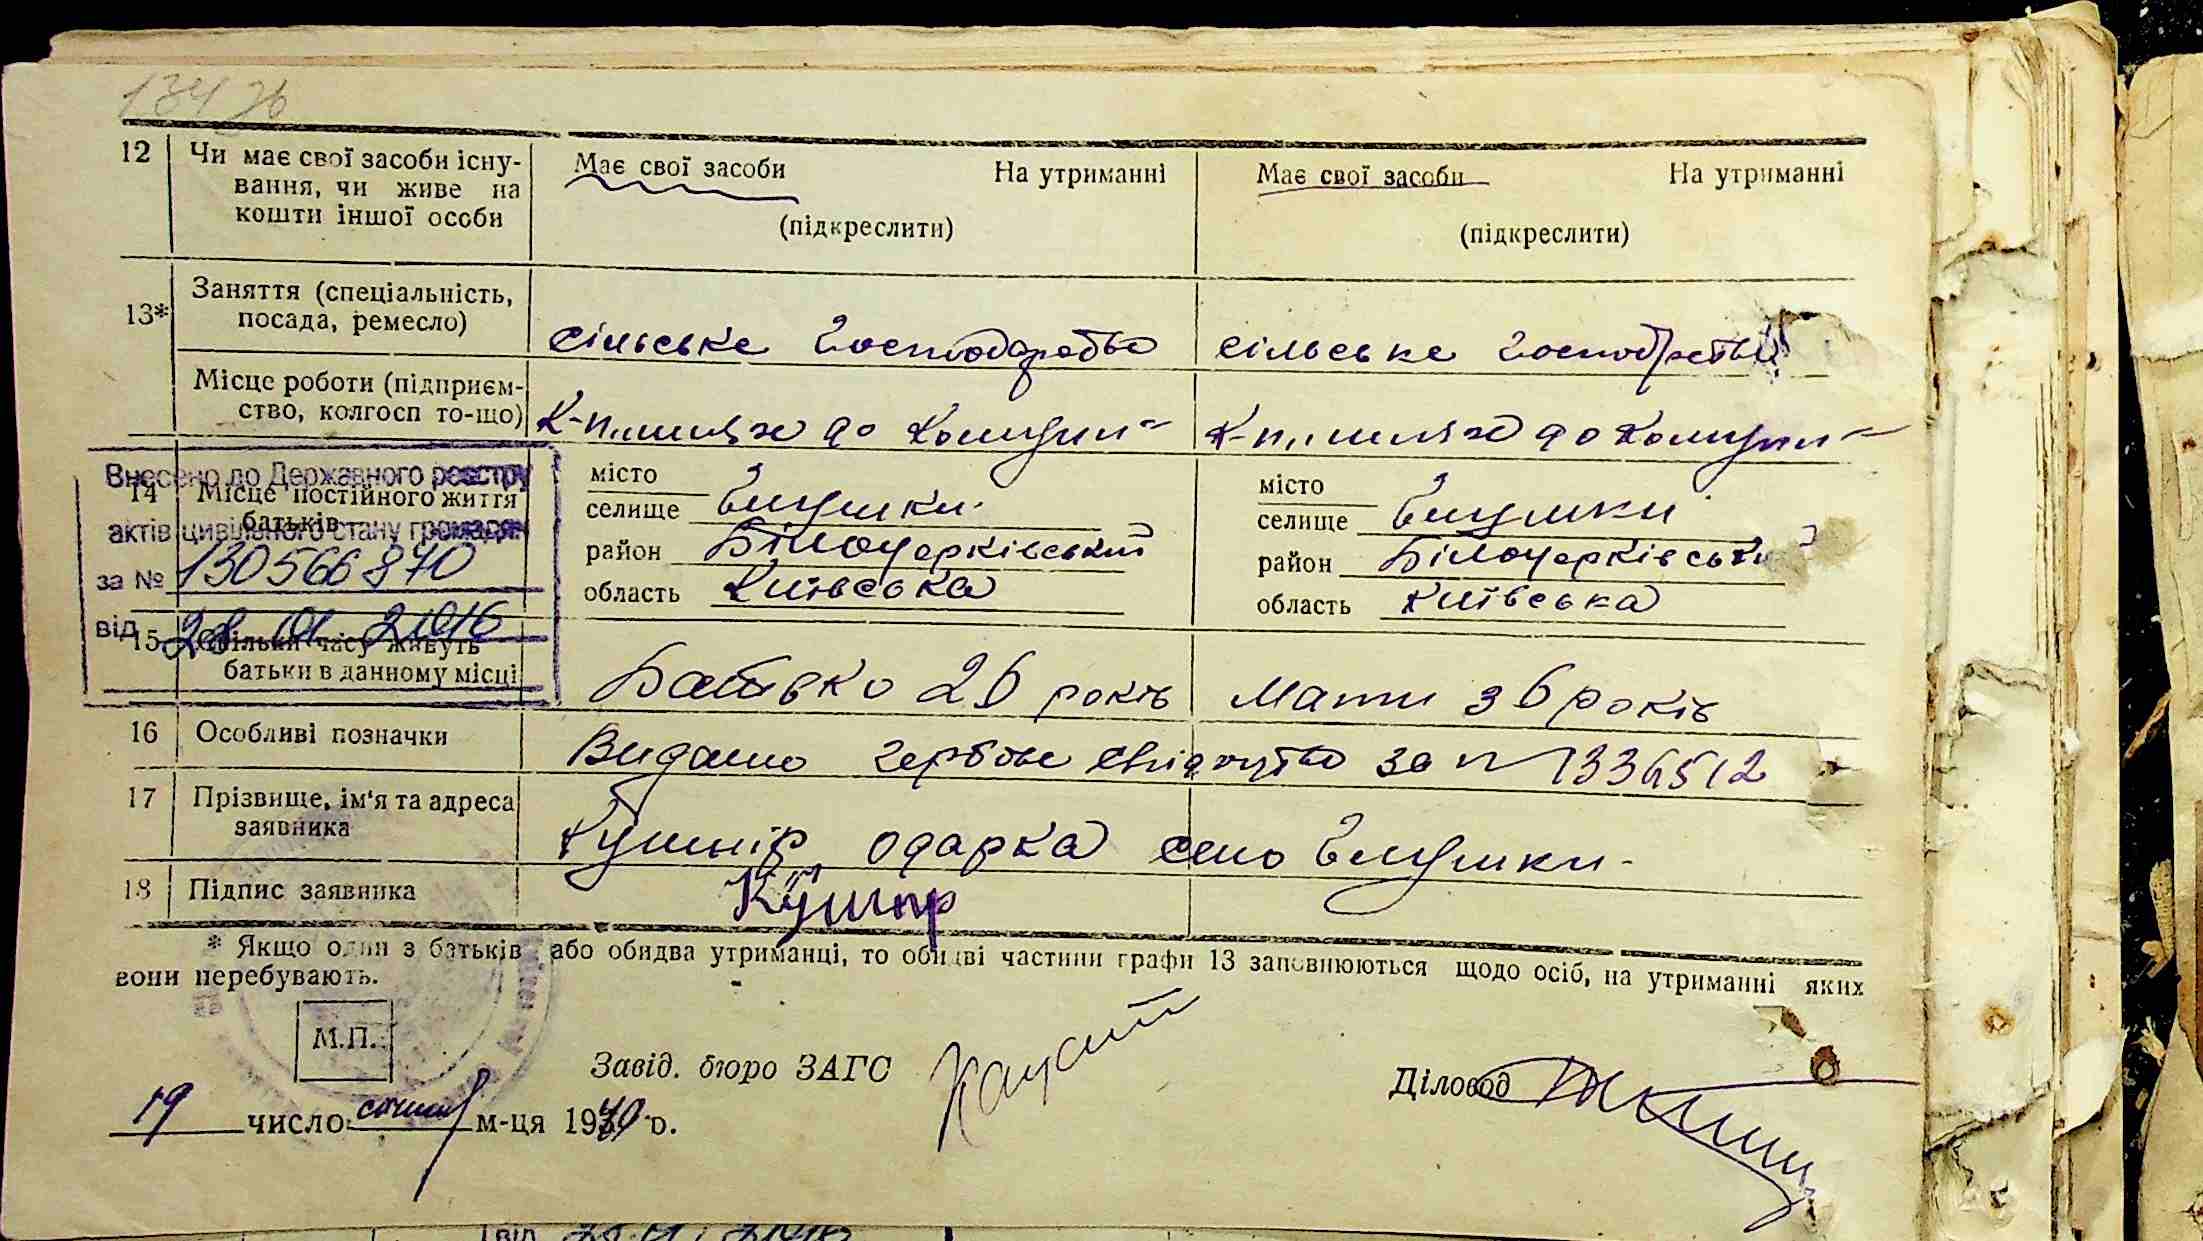 134 зв
12 Чи має свої засоби існу- Має свої засоби На утриманні Має свої засоби На утриманні
вання, чи живе на
кошти іншої особи (підкреслити) (підкреслити)
13* Заняття (спеціальність,
посада, ремесло) сільське господарство сільське господарство
Місце роботи (підприєм-
ство, колгосп то-що) К-п шлях до Комуни К-п шлях до Комуни
Внесено до Державного реєстру
актів цивільного стану громадян
за № 130566870
від 28 01 2016
14 Місце постійного життя
батьків
місто місто
селище Глушки селище Глушки
район Білоцерківський район Білоцерківський
область Київська область Київська
15 Скільки часу живуть
батьки в данному місці Батько 26 років Мати 36 років
16 Особливі позначки Видано гербове свідоцтво за № 1336512
17 Прізвище, ім'я та адреса
заявника Кушнір Одарка село Глушки
18 Підпис заявника Кушнір
* Якщо один з батьків або обидва утриманці, то обидві частини графи 13 заповнюються щодо осіб, на утриманні яких
вони перебувають.
М.П.
Завід. бюро ЗАГС
Діловод
19 число січня м-ця 1940 р.
від